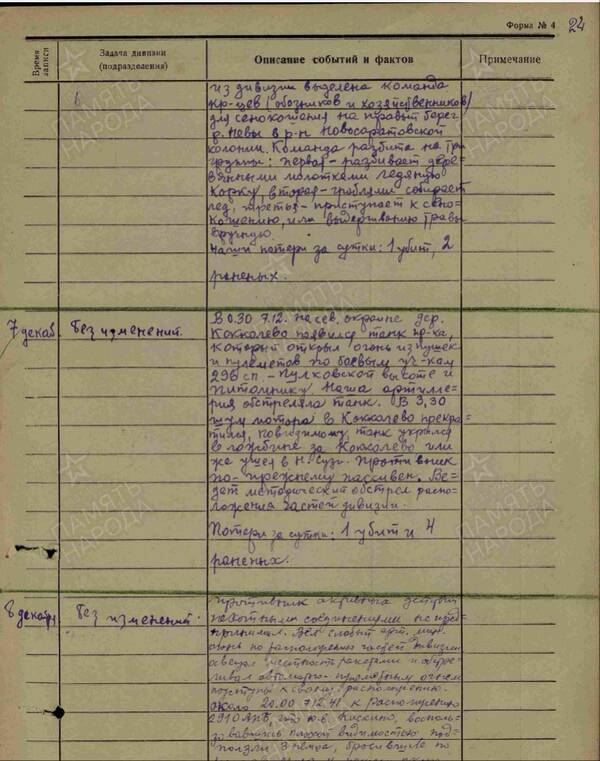 Форма № 4 24
Время записи
Задача дивизии
(подразделения)
Описание событий и фактов
Примечание
из дивизии выделена команда
кр-цев (обозников и хозяйственников)
для сенокошения на правый берег
р. Невы в р-н Новосаратовской
колонии. Команда разбита на три
группы: первая – разбивает дере-
вянными молотками ледяную
корку, вторая – граблями собирает
лед, третья – приступает к сено-
кошению, или выдергиванию травы
вручную
Наши потери за сутки: 1 убит, 2
раненых.
7 декаб.
Без изменений.
В 0.30 7.12. на сев. окраине дер.
Кокколево появился танк пр-ка,
который открыл огонь из пушек
и пулеметов по боевым уч-кам
296 сп – Пулковской высоте и
Питомнику. Наша артилле-
рия обстреляла танк. В 3,30
шум мотора в Кокколево прекра-
тился, повидимому, танк укрылся
в лощине за Кокколево или
же ушел в Н. Сузи. Противник
по-прежнему пассивен. Ве-
дет методический обстрел распо-
ложения частей дивизии.
Потери за сутки: 1 убит и 4
раненых.
8 декабря
Без изменений.
Противник активных действий
пехотными соединениями не пред-
принимал. Вел слабый арт. мин.
огонь по расположению частей дивизии
освещал местность ракетами и обстре-
ливал автоматно-пулеметным огнем
подступы к своему расположению.
Около 20.00 7.12.41 к расположению
291 ОАПБ, что ю.в. Кискино, восполь-
зовавшись плохой видимостью под-
ползли 3 немца, бросившие по